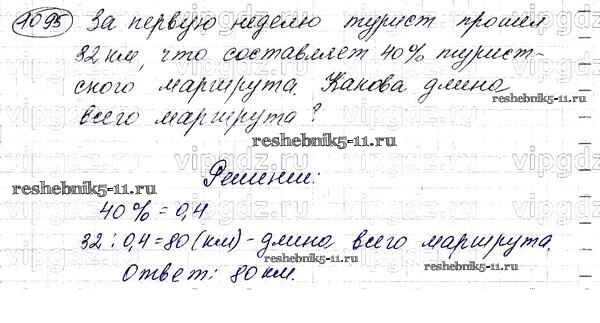 1095 За первую неделю турист прошел
32 км, что составляет 40% турист-
ского маршрута. Какова длина
всего маршрута?
reshebnik5-11.ru
reshebnik5-11.ru
Решение:
reshebnik5-11.ru
40% = 0,4
32 : 0,4 = 80 (км) - длина всего маршрута.
reshebnik5-11.ru
Ответ: 80 км.